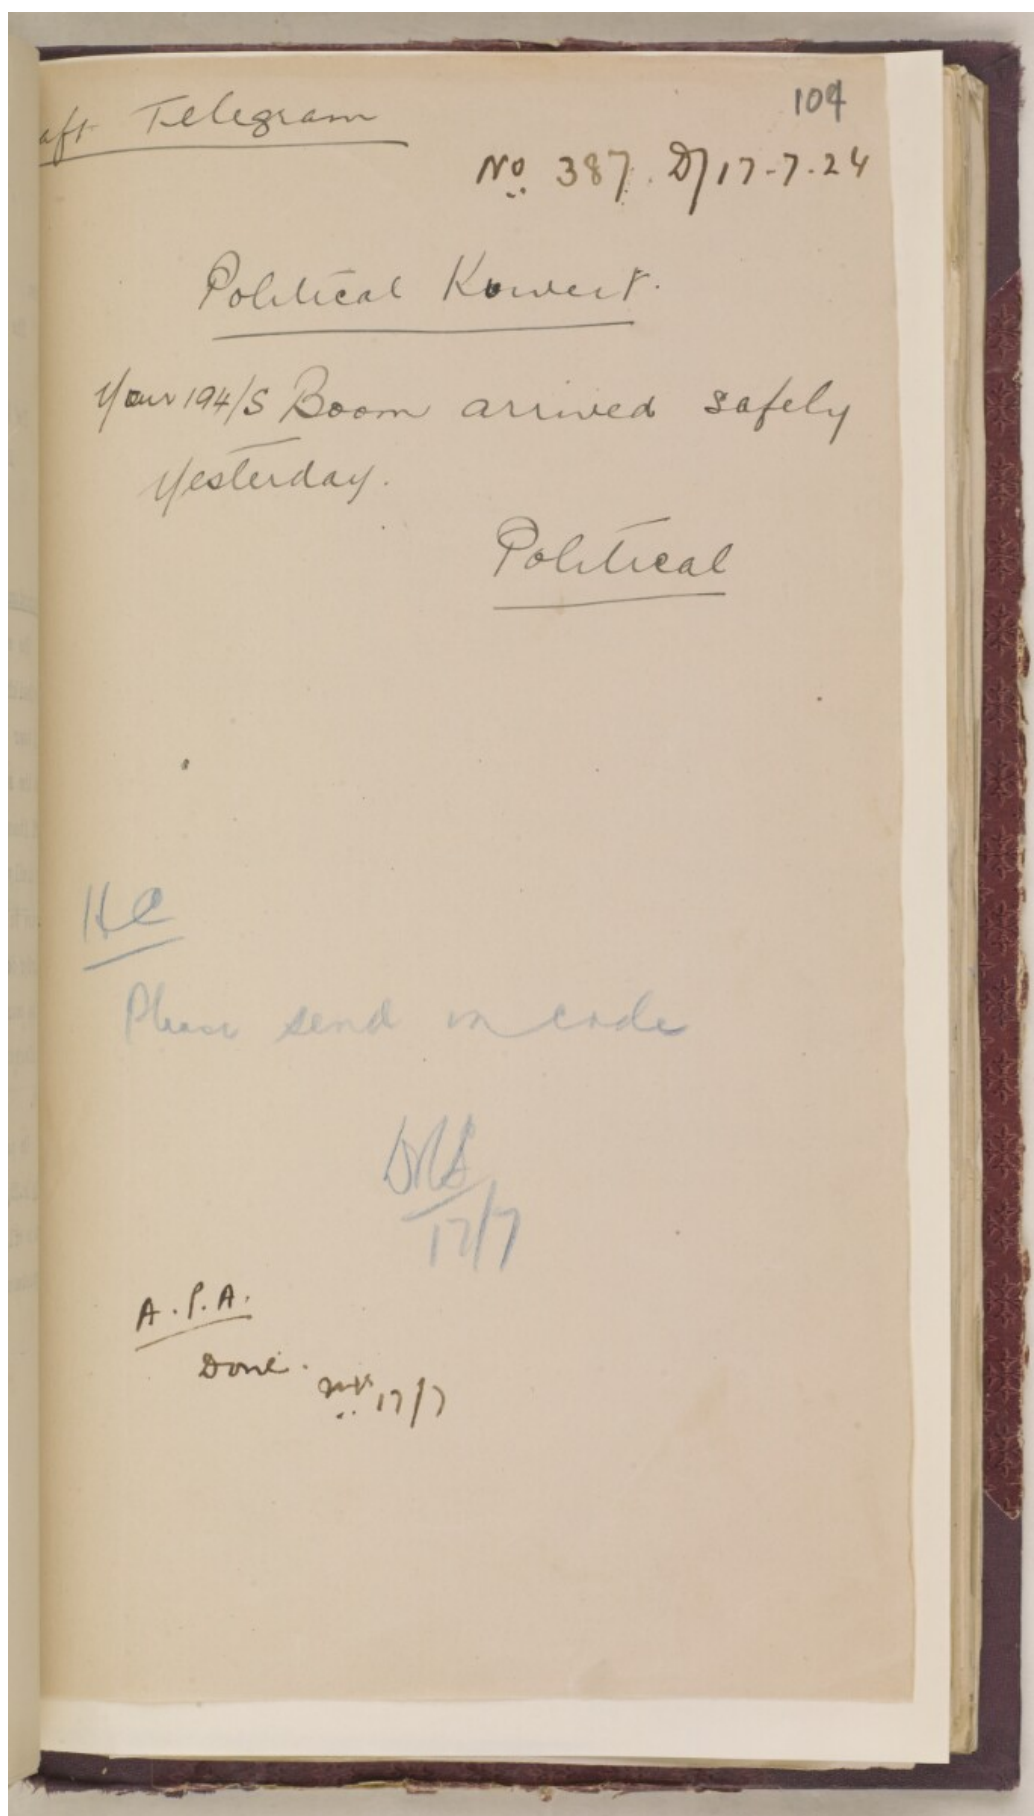 104
aft Telegram
No. 387. D/17-7-24
Political Kuweit.
Your 194/S Boom arrived safely
yesterday.
Political
HC
Please send in code
17/7
A.P.A.
Done.
17/7